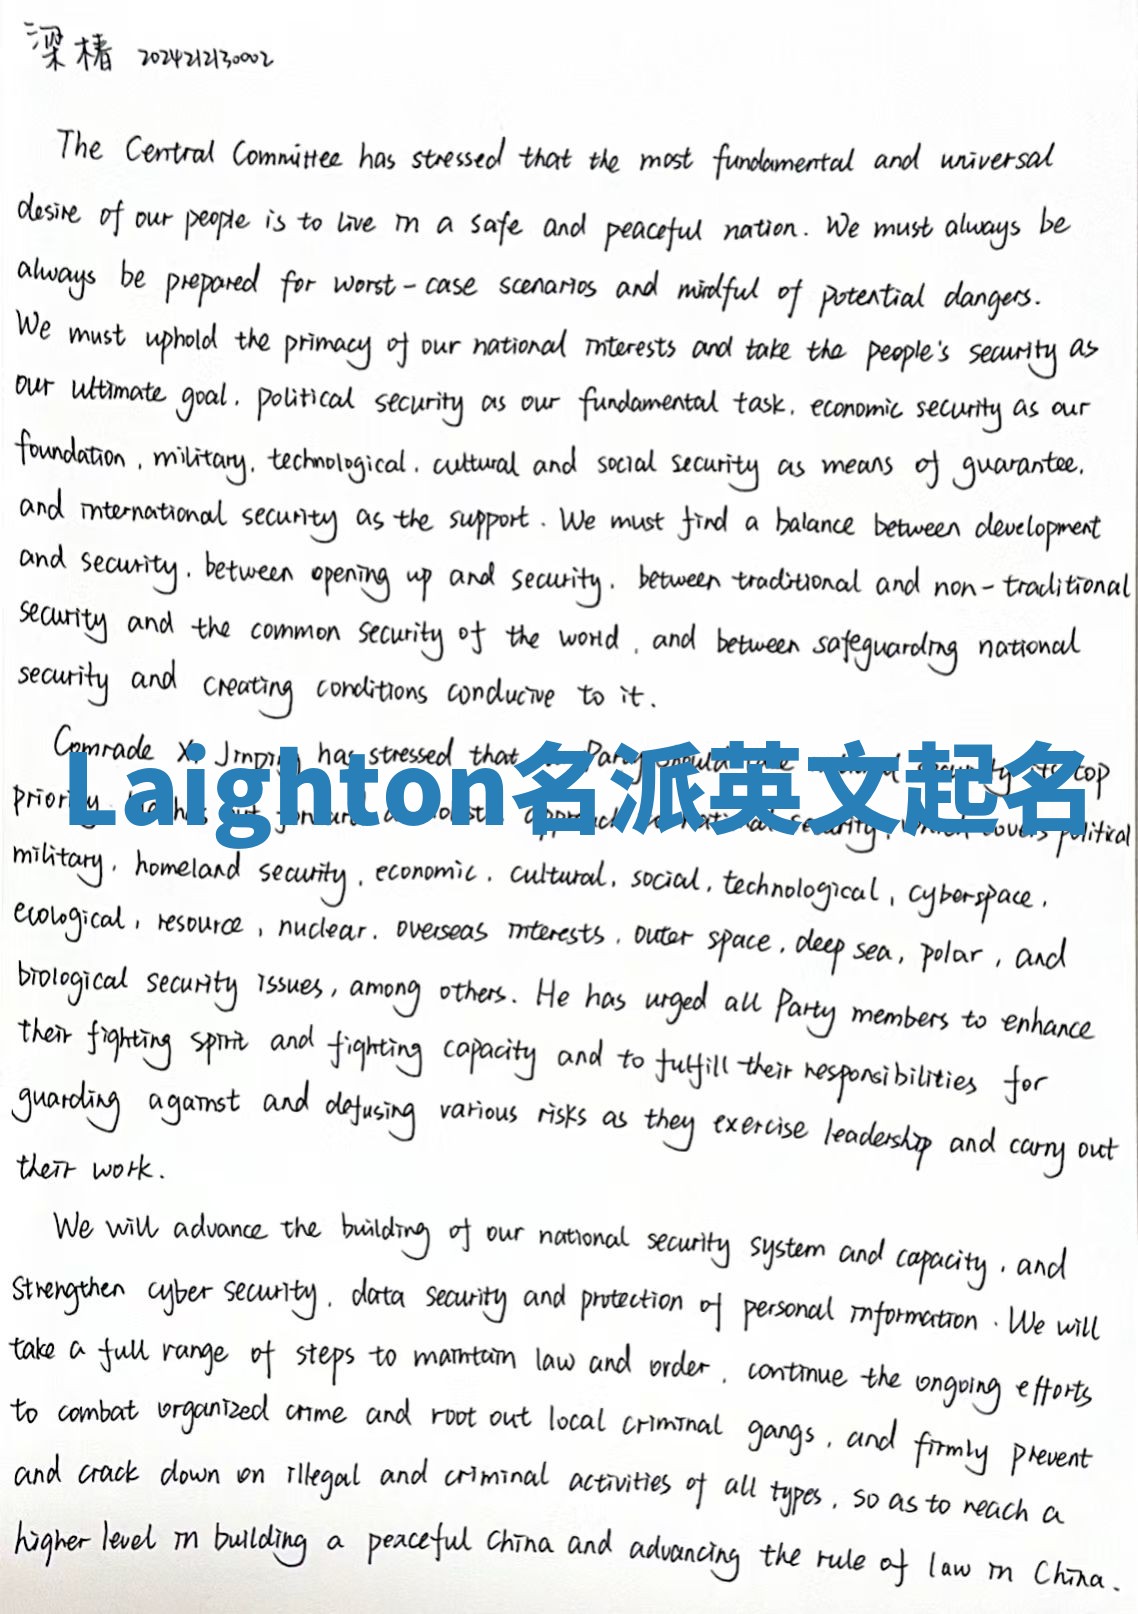 梁椿 2024212130002
The Central Committee has stressed that the most fundamental and universal
desire of our people is to live in a safe and peaceful nation. We must always be
always be prepared for worst-case scenarios and mindful of potential dangers.
We must uphold the primacy of our national interests and take the people's security as
our ultimate goal, political security as our fundamental task, economic security as our
foundation, military, technological, cultural and social security as means of guarantee,
and international security as the support. We must find a balance between development
and security, between opening up and security, between traditional and non-traditional
security and the common security of the world, and between safeguarding national
security and creating conditions conducive to it.
Comrade Xi Jinping has stressed that Party should top
Laighton名派英文起名
priority has approach national security, which covers political
military, homeland security, economic, cultural, social, technological, cyberspace,
ecological, resource, nuclear, overseas interests, outer space, deep sea, polar, and
biological security issues, among others. He has urged all Party members to enhance
their fighting spirit and fighting capacity and to fulfill their responsibilities for
guarding against and defusing various risks as they exercise leadership and carry out
their work.
We will advance the building of our national security system and capacity, and
strengthen cyber security, data security and protection of personal information. We will
take a full range of steps to maintain law and order, continue the ongoing efforts
to combat organized crime and root out local criminal gangs, and firmly prevent
and crack down on illegal and criminal activities of all types, so as to reach a
higher level in building a peaceful China and advancing the rule of law in China.